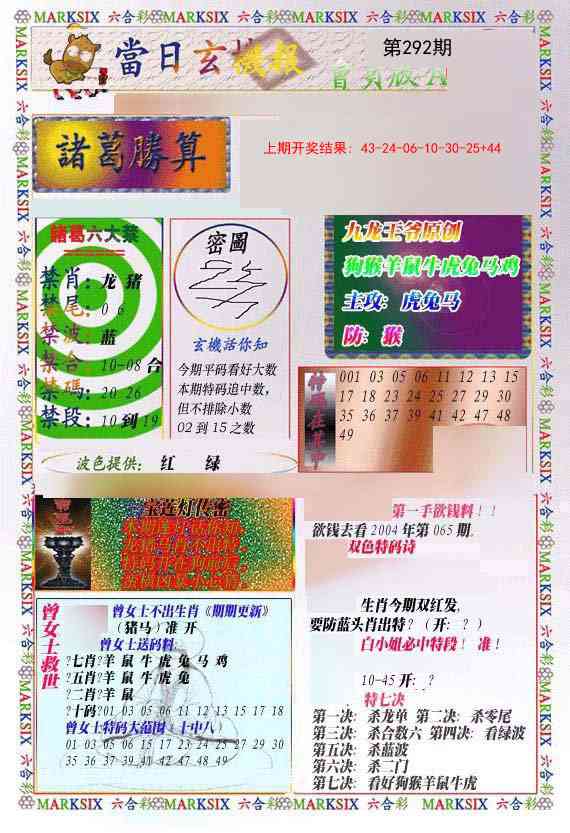 MARKSIX 六合彩 MARKSIX 六合彩 MARKSIX 六合彩 MARKSIX 六合彩
當日玄機報
第292期
會員版A
諸葛勝算
上期开奖结果: 43-24-06-10-30-25+44
諸葛六大禁
禁肖: 龙 猪
禁尾: 0 6
禁波: 蓝
禁合: 10-08 合
禁碼: 20 26
禁段: 10 到 19
密圖
玄機活你知
今期平码看好大数
本期特码追中数,
但不排除小数
02 到 15 之数
九龙王爷原创
狗猴羊鼠牛虎兔马鸡
主攻: 虎兔马
防: 猴
001 03 05 06 11 12 13 15
17 18 23 24 25 27 29 30
35 36 37 39 41 42 47 48
49
波色提供: 红 绿
宝莲灯传密
第一手欲钱料!!
欲钱去看 2004 年第 065 期.
双色特码诗
生肖今期双红发,
要防蓝头肖出特? (开: ? )
白小姐必中特段! 准!
10-45 开: ?
特七决
第一决: 杀龙单 第二决: 杀零尾
第三决: 杀合数六 第四决: 看绿波
第五决: 杀蓝波
第六决: 杀二门
第七决: 看好狗猴羊鼠牛虎
曾女士救世
曾女士不出生肖《期期更新》
(猪马) 准 开
曾女士送码料:
?七肖?羊 鼠 牛 虎 兔 马 鸡
?五肖?羊 鼠 牛 虎 兔
?二肖?羊 鼠
?十码?01 03 05 06 11 12 13 15 17 18
曾女士特码大范围 (十中八)
01 03 05 06 15 17 23 24 25 27 29 30
35 36 37 39 41 42 47 48 49
MARKSIX 六合彩 MARKSIX 六合彩 MARKSIX 六合彩 MARKSIX 六合彩